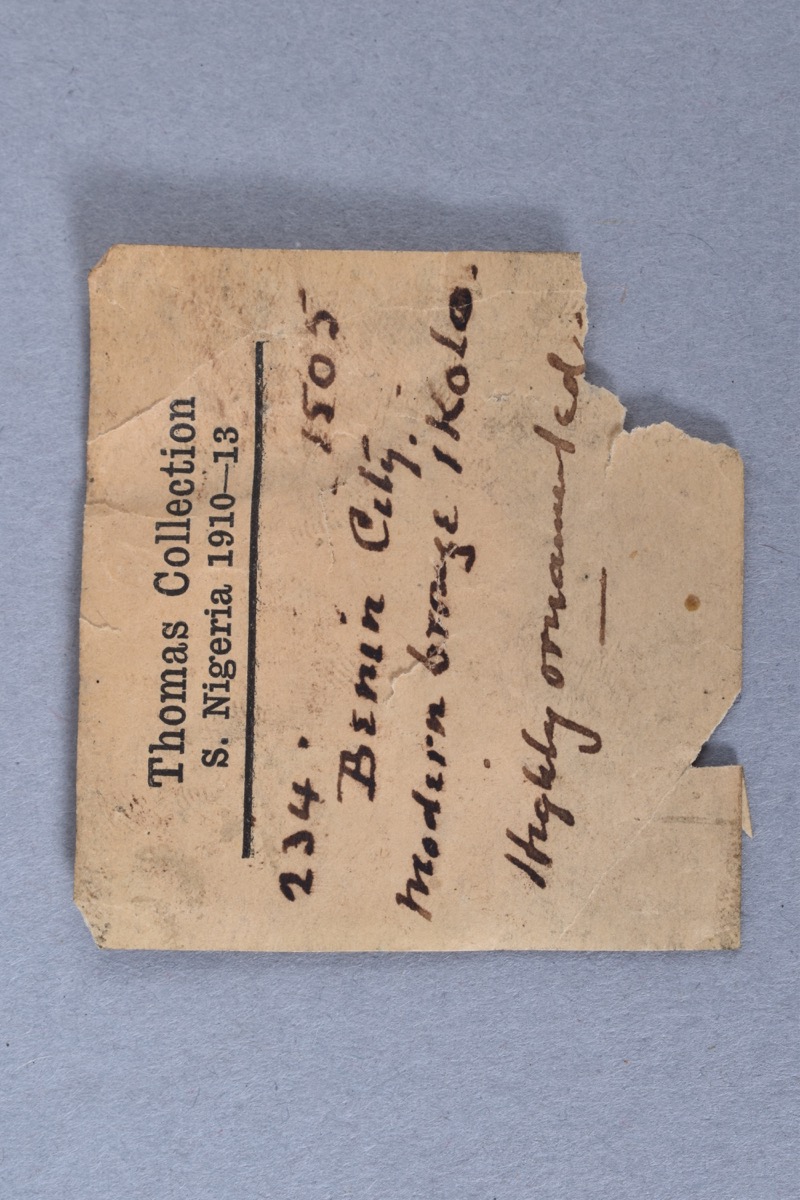 Thomas Collection
S. Nigeria 1910—13
234. 1505
Benin City.
Modern bronze ikolo.
Highly ornamented.